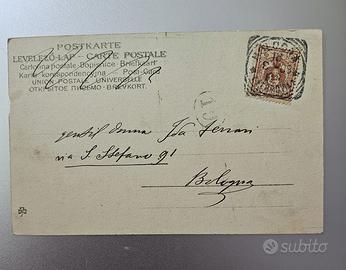 POSTKARTE
LEVELEZŐ-LAP — CARTE POSTALE
Cartolina postale - Dopisnice - Briefkaart
Karta korespondencyjna — Post-Card
UNION POSTALE UNIVERSELLE
ОТКРЫТОЕ ПИСЬМО - BREVKORT.
gentil donna Ida Ferrari
via S. Stefano 91
Bologna
subito